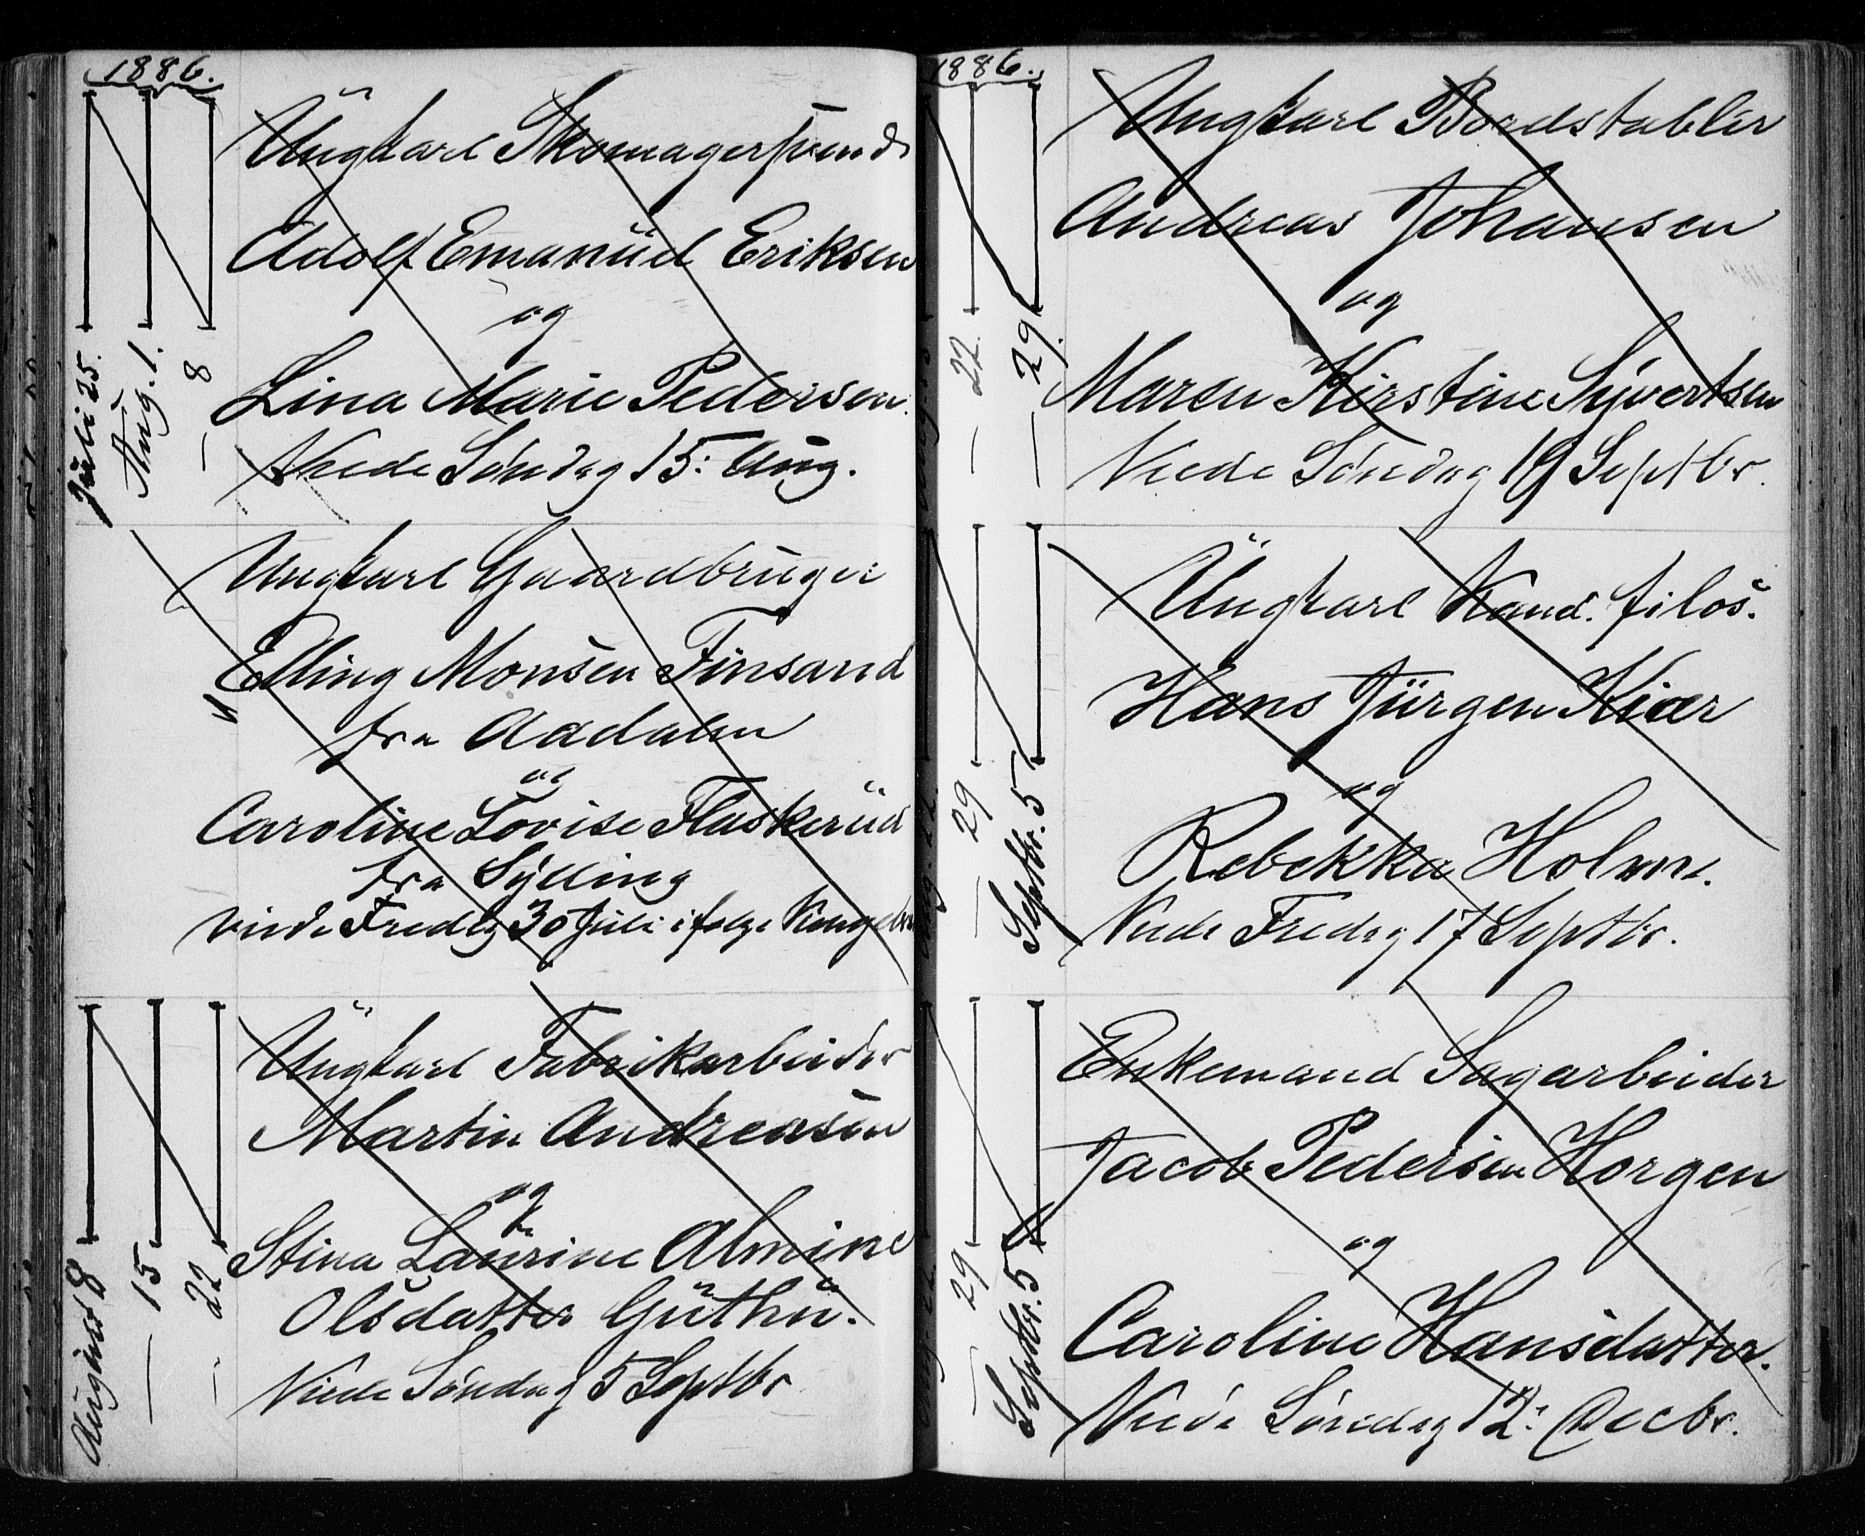 1886.
Juli 25.
Aug. 1.
— 8
Ungkarl Skomagersvend
Adolf Emanuel Eriksen
og
Lina Marie Pedersen.
Viede Söndag 15: Aug.
Ungkarl Gaardbruger
Elling Monsen Finsand
fra Aadalen
og
Caroline Lovise Flaskerud
fra Sylling
viede Fredag 30 Juli ifølge Kongebr
August 8
— 15
— 22
Ungkarl Fabrikarbeider
Martin Andreasen
og
Stina Laurine Almine
Olsdatter Guthu.
Viede Söndag 5 Septbr
1886.
— 22.
— 29.
Ungkarl Bordstabler
Andreas Johansen
og
Maren Kirstine Syvertsen
Viede Söndag 19 Septbr.
— 29
Septbr. 5
Ungkarl Kand. filos.
Hans Jürgen Kiær
og
Rebekka Holme.
Viede Fredag 17 Septbr.
— 29
Septbr. 5
Enkemand Sagarbeider
Jacob Pedersen Horgen
og
Caroline Hansdatter.
Viede Söndag 12: Decbr.